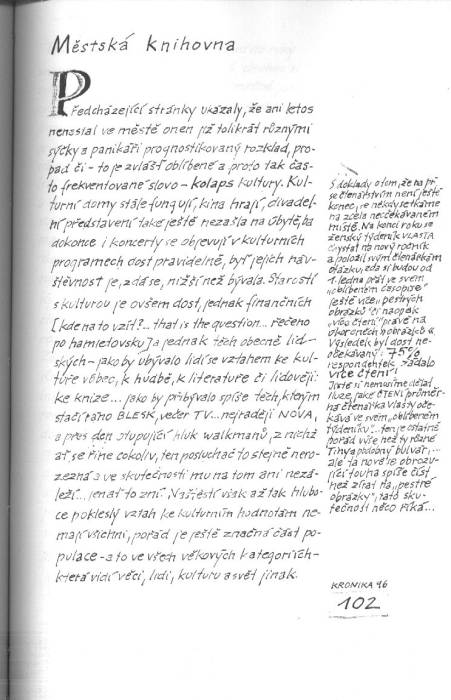 Městská knihovna
Předcházející stránky ukázaly, že ani letos
nenastal ve městě onen již tolikrát různými
sýčky a panikáři prognostikovaný rozklad, pro-
pad či - to je zvlášť oblíbené a proto tak čas-
to frekventované slovo - kolaps kultury. Kul-
turní domy stále fungují, kina hrají, divadel-
ní představení také ještě nezašla na úbytě, ba
dokonce i koncerty se objevují v kulturních
programech dost pravidelně, byť jejich náv-
štěvnost je, zdá se, nižší než bývala. Starostí
s kulturou je ovšem dost, jednak finančních
[kde na to vzít?... that is the question... řečeno
po hamletovsku] a jednak těch obecně lid-
ských - jako by ubývalo lidí se vztahem ke kul-
tuře vůbec, k hudbě, k literatuře či lidověji:
ke knize... jako by přibývalo spíše těch, kterým
stačí ráno BLESK, večer TV... nejraději NOVA,
a přes den otupující hluk walkmanů, z nichž
ať se řine cokoliv, ten posluchač to stejně nero-
zezná a ve skutečnosti mu na tom ani nezá-
leží... jen ať to zní. Naštěstí však až tak hlubo-
ce pokleslý vztah ke kulturním hodnotám ne-
mají všichni, pořád je ještě značná část po-
pulace - a to ve všech věkových kategoriích -
která vidí věci, lidi, kulturu a svět jinak.
S doklady o tom, že na př.
se čtenářstvím není ještě
konec, se někdy setkáme
na zcela nečekaném
místě. Na konci roku se
ženský týdeník VLASTA
chystal na nový ročník
a položil svým čtenářkám
otázku, zda si budou od
1. ledna přát ve svém
"oblíbeném časopise"
ještě více "pestrých
obrázků" či naopak
"více čtení" právě na
úkor oněch obrázků.
Výsledek byl dost ne-
očekávaný: 75%
respondentek žádalo
více čtení!
Jistě si nemusíme dělat
iluze, jaké ČTENÍ průměr-
ná čtenářka Vlasty oče-
kává ve svém "oblíbeném
týdeníku"... ten je ostatně
pořád výše než ty různé
Tiny a podobný bulvár,...
ale ta nově se obrozu-
jící touha spíše číst
než zírat na "pestré
obrázky", tato sku-
tečnost něco říká...
KRONIKA 96
102